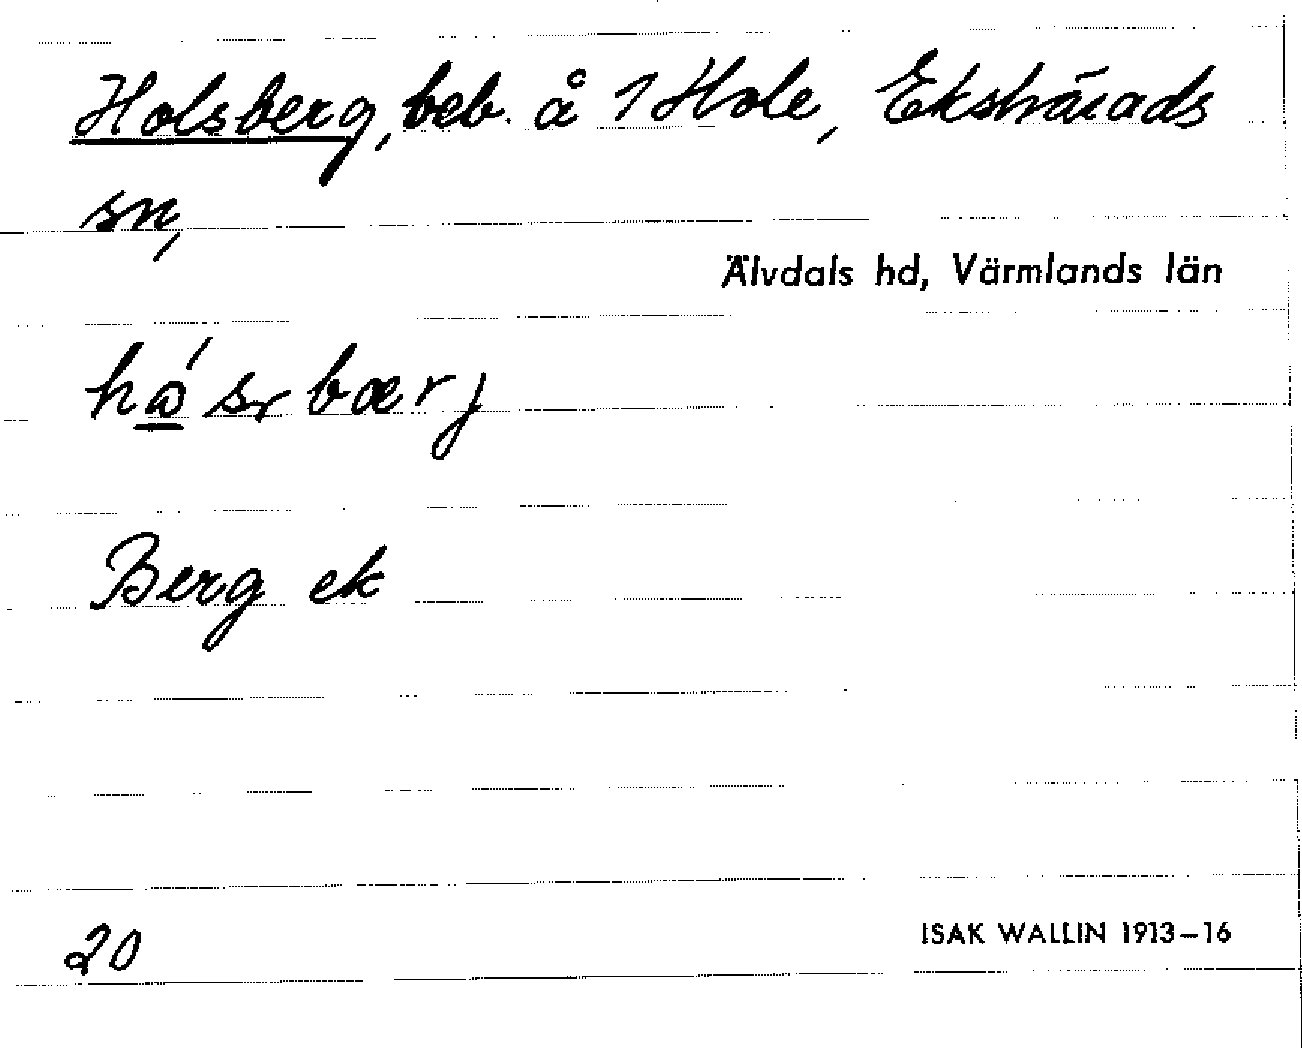 Holsberg, beb. å 1 Hole, Ekshärads
sn,
Älvdals hd, Värmlands län
hǻsrbærj
Berg ek
20
ISAK WALLIN 1913–16